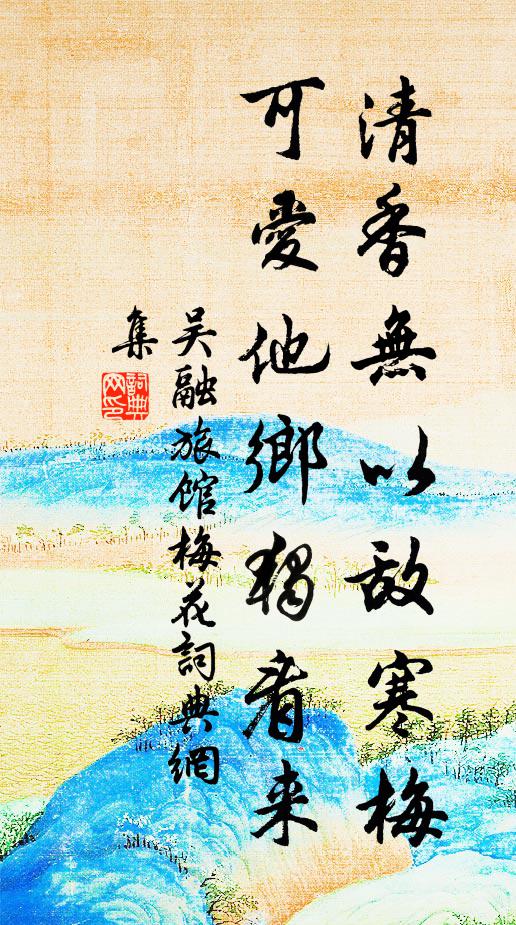 清香無以敵寒梅
可愛他鄉獨看来
吴融旅馆梅花詞典網
集
詞典
网印